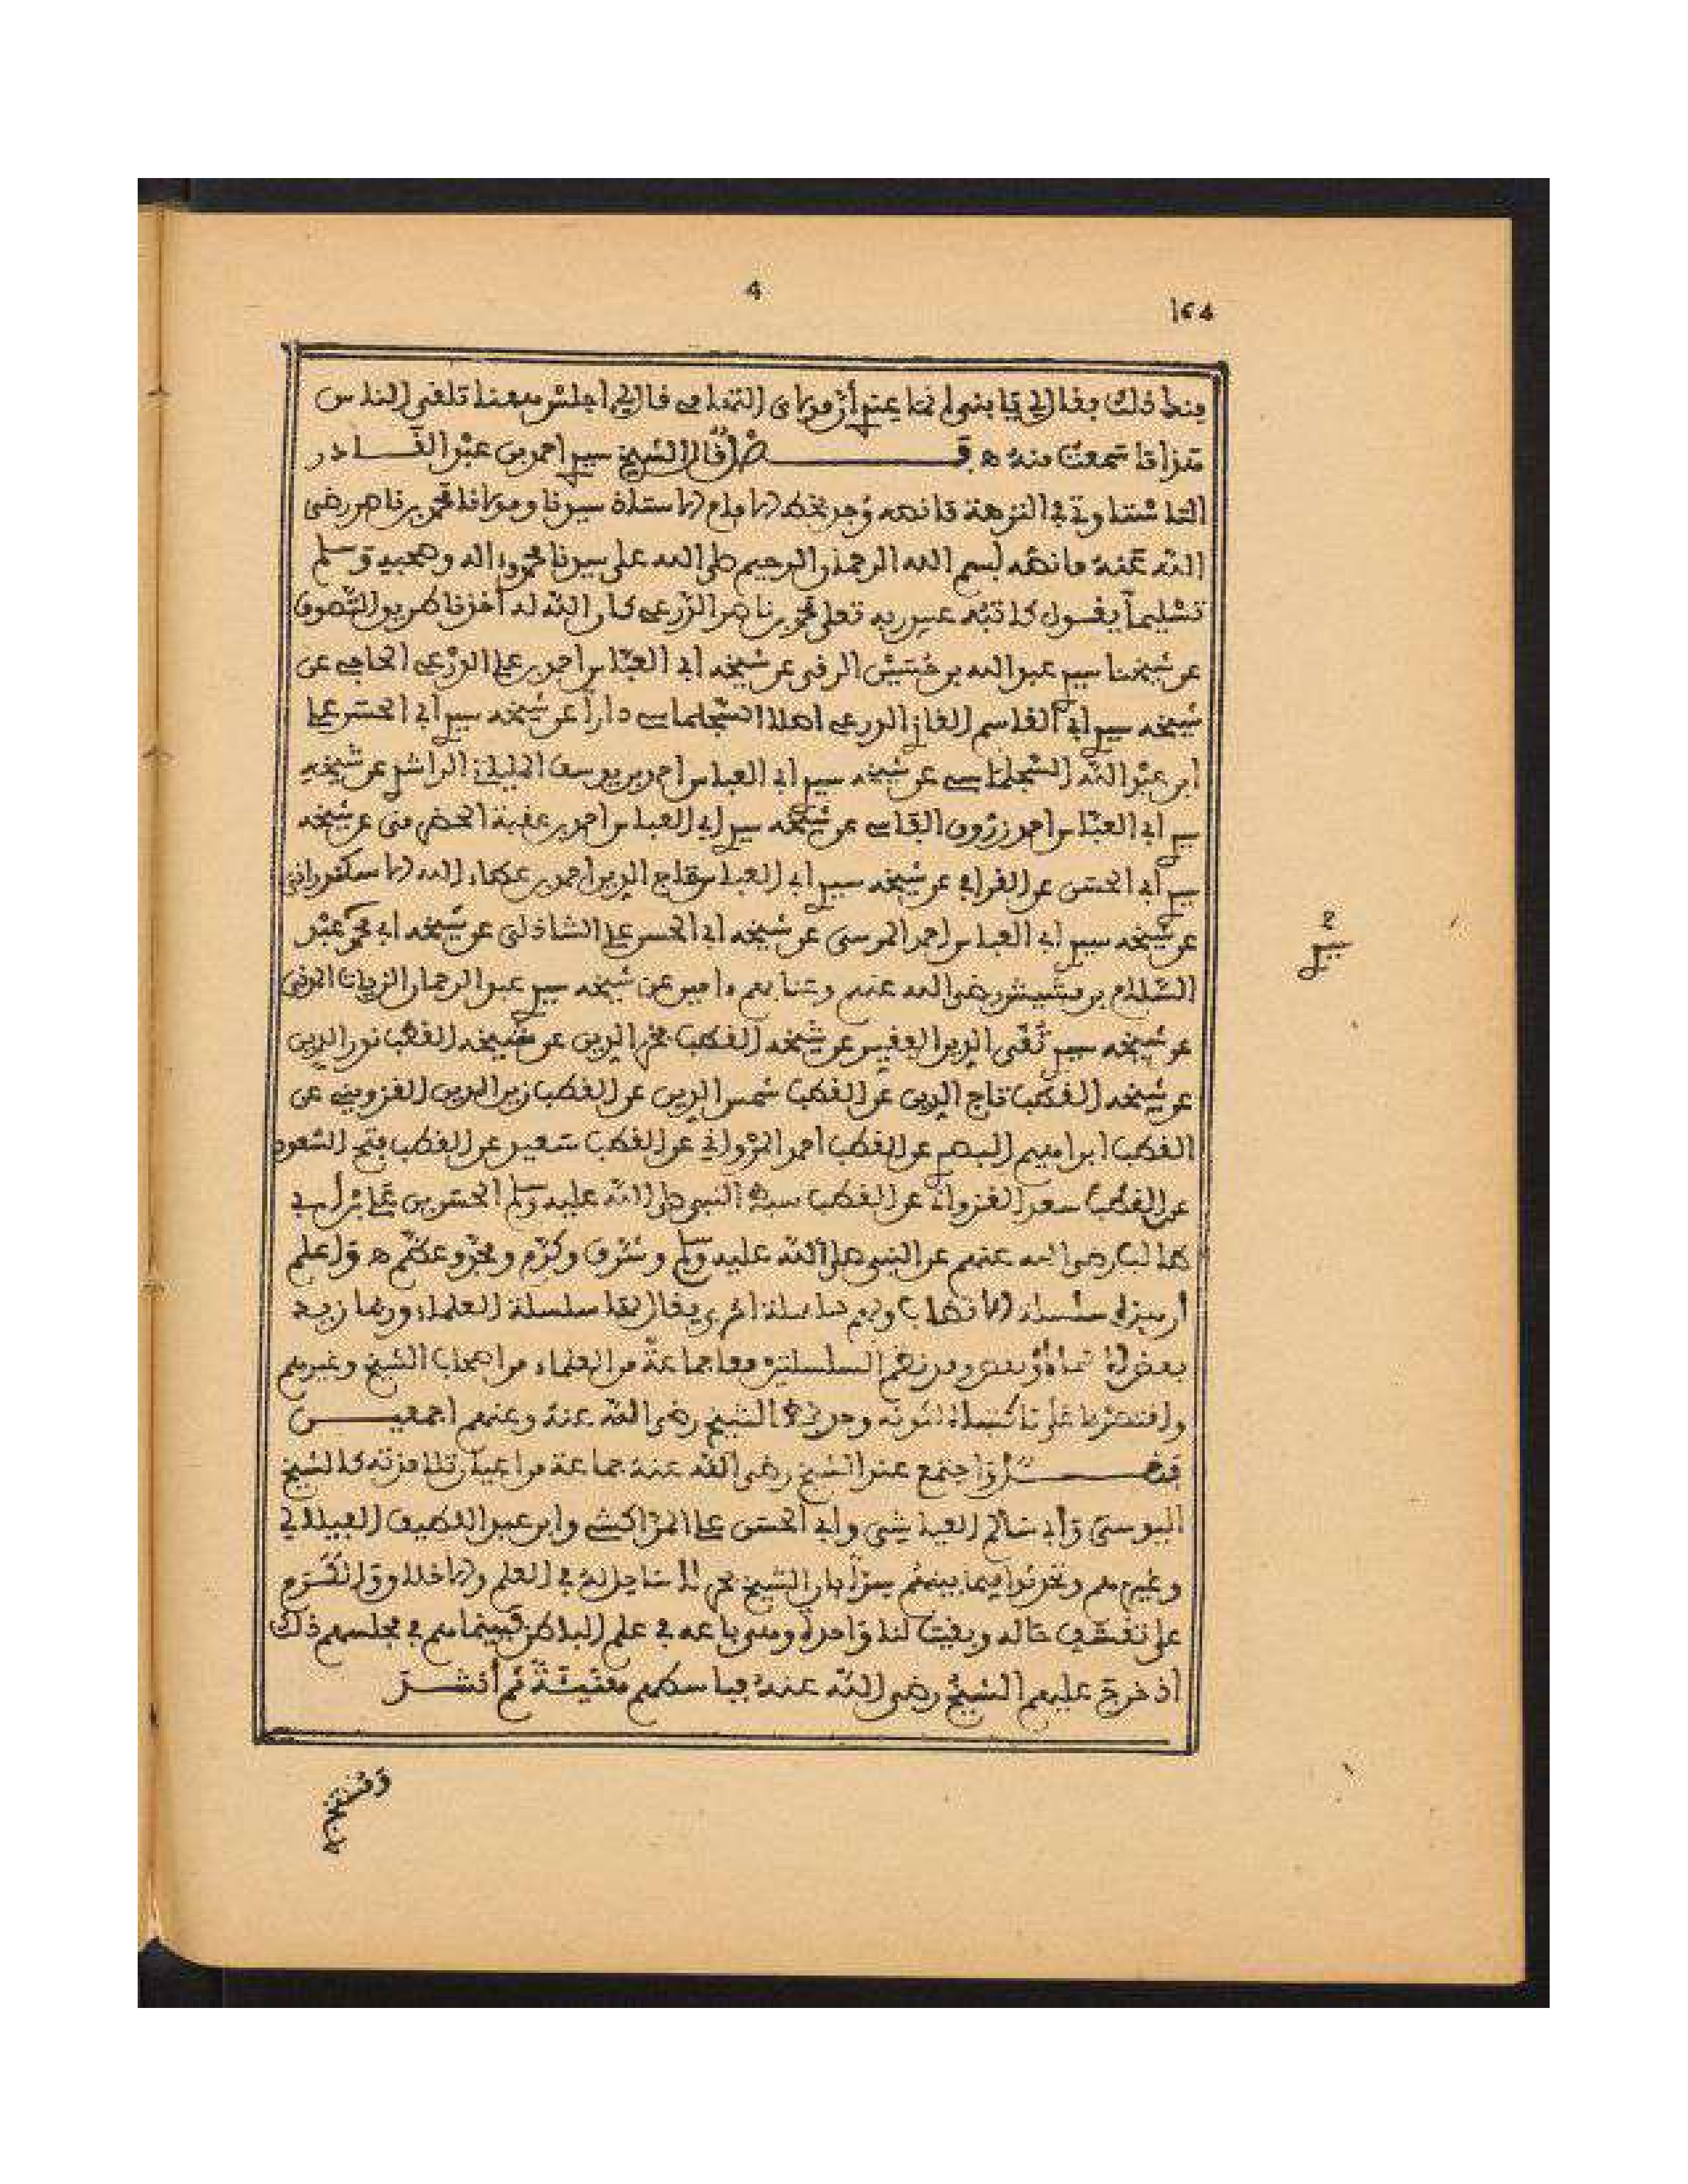 4
164
ذلك فقال لي يا بني اجلس معنا تلقى الناس
هذا ما سمعت منه ه فـصل قال الشيخ سيدي احمد بن عبد القادر
التاستاوتي في النزهة ما نصه وجد بخط الامام الاستاذ سيدنا ومولانا محمد بن ناصر رضي
الله عنه ما نصه بسم الله الرحمن الرحيم صلى الله على سيدنا محمد واله وصحبه وسلم
تسليما يقول كاتبه عبيد ربه تعلى محمد بن ناصر الدرعي كان الله له أخذنا طريق التصوف
عن شيخنا سيدي عبد الله بن حسين الرقي عن شيخه أبي العباس احمد بن علي الدرعي الحاجي عن
شيخه سيدي أبي القاسم الغازي الدرعي اصلا السجلماسي دارا عن شيخه سيدي أبي الحسن علي
ابن عبد الله السجلماسي عن شيخه سيدي ابي العباس احمد بن يوسف الملياني الراشدي عن شيخه
سيدي ابي العباس احمد زروق الفاسي عن شيخه سيدي ابي العباس احمد بن عقبة الحضرمي عن شيخه
سيدي أبي الحسن عن القرافي عن شيخه سيدي أبي العباس تاج الدين احمد بن عطاء الله الاسكندراني
عن شيخه سيدي ابي العباس احمد المرسي عن شيخه ابي الحسن علي الشاذلي عن شيخه ابي محمد عبد
السلام بن مشيش رضي الله عنهم وعنا بهم ءامين عن شيخه سيدي عبد الرحمان الزيات المدني
عن شيخه سيدي تقي الدين الفقير عن شيخه القطب فخر الدين عن شيخه القطب نور الدين
عن شيخه القطب تاج الدين عن القطب شمس الدين عن القطب زين الدين القزويني عن
القطب ابراهيم البصري عن القطب احمد المرواني عن القطب سعيد عن القطب فتح السعود
عن القطب سعد الغزواني عن القطب سبط النبي صلى الله عليه وسلم الحسن بن علي بن أبي
طالب رضي الله عنهم عن النبي صلى الله عليه وسلم وشرف وكرم ومجد وعظم ه واعلم
أن هذه سلسلة الاقطاب ولهم سلسلة اخرى يقال لها سلسلة العلماء وربما زيد
بعض وقد نظم السلسلتين معا جماعة من العلماء من اصحاب الشيخ وغيرهم
واقتصرنا على ما الشيخ رضي الله عنه وعنهم اجمعيـن
فصـل واجتمع عند الشيخ رضي الله عنه جماعة من اعيان تلامذته كالشيخ
اليوسي وأبي سالم العياشي وأبي الحسن علي المراكشي وابن عبد اللطيف الفيلالي
وغيرهم وتحدثوا فيما بينهم سرا بان الشيخ بحر لا ساحل له في العلم
على حاله وبقيت لنا واحدة في علم فبينما هم في مجلسهم ذلك
اذ خرج عليهم الشيخ رضي الله عنه فباسطهم ثم أنشـد
سيدي